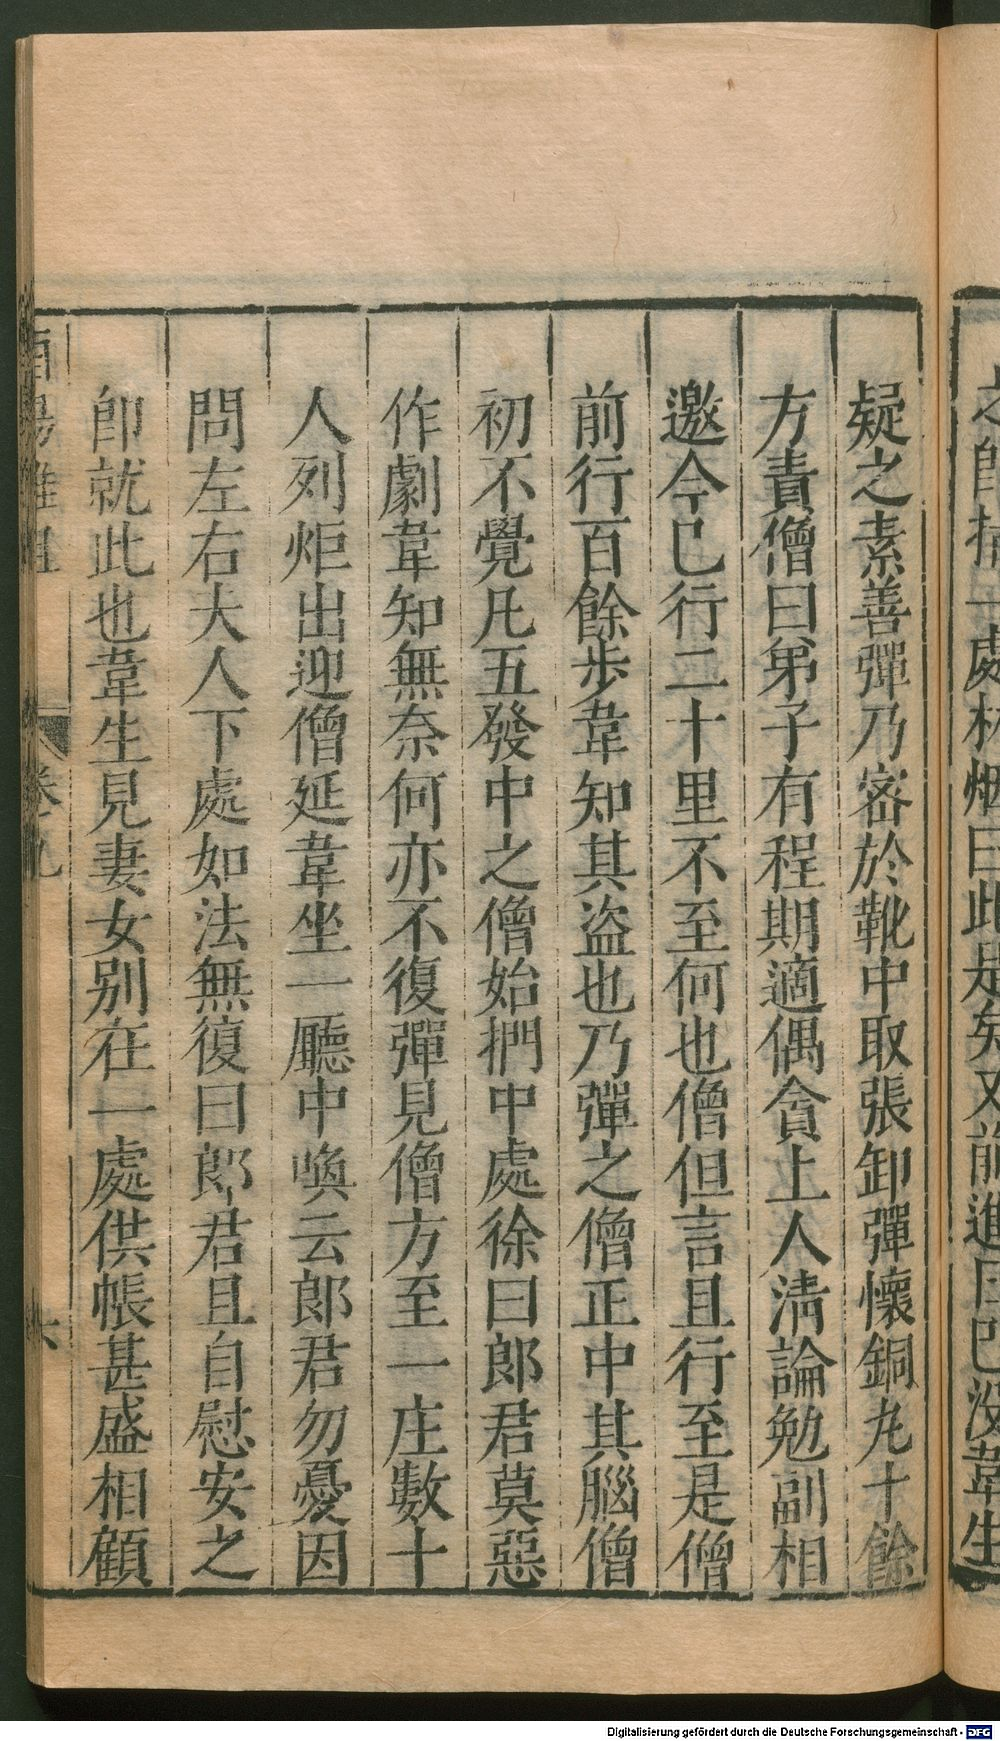 之卽指一處林烟曰此是矣又前進日已没韋生
疑之素善彈乃密於靴中取張卸彈懷銅丸十餘
方責僧曰弟子有程期適偶貪上人淸論勉副相
邀今已行二十里不至何也僧但言且行至是僧
前行百餘步韋知其盜也乃彈之僧正中其腦僧
初不覺凡五發中之僧始捫中處徐曰郎君莫惡
作劇韋知無奈何亦不復彈見僧方至一庄數十
人列炬出迎僧延韋坐一廳中喚云郎君勿憂因
問左右夫人下處如法無復曰郎君且自慰安之
卽就此也韋生見妻女別在一處供帳甚盛相顧
酉陽雜俎 卷九 六
Digitalisierung gefördert durch die Deutsche Forschungsgemeinschaft - DFG